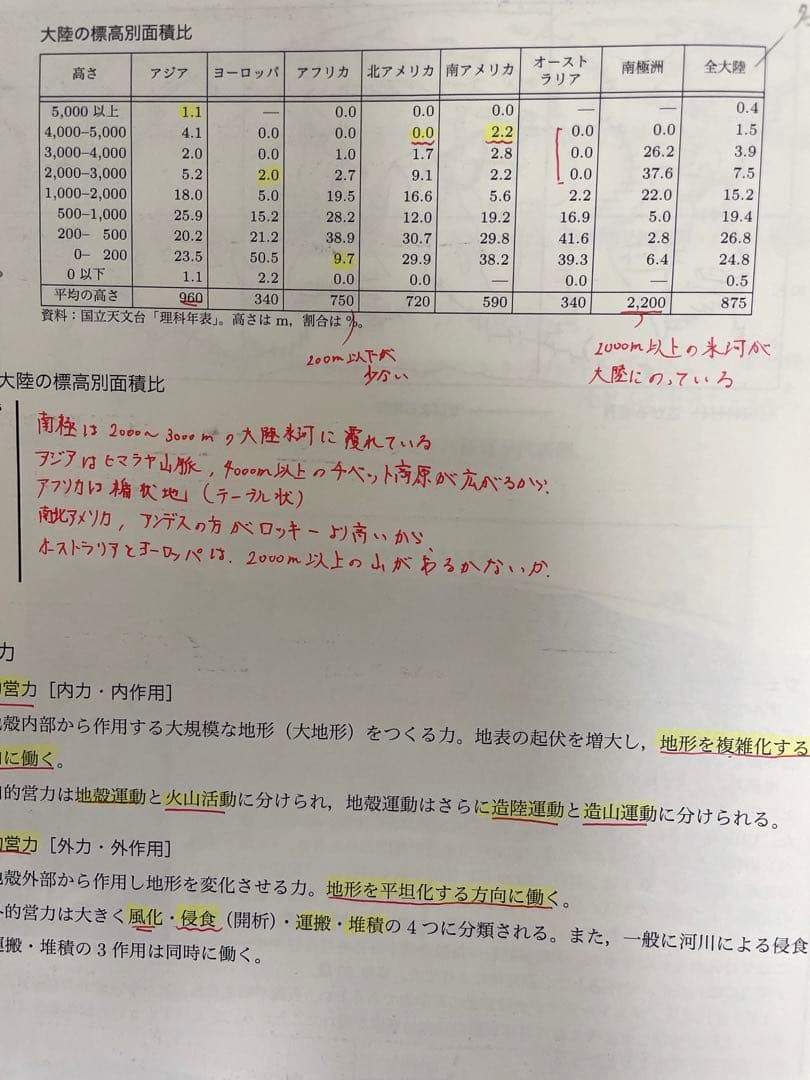 大陸の標高別面積比
高さ アジア ヨーロッパ アフリカ 北アメリカ 南アメリカ オーストラリア 南極洲 全大陸
5,000以上 1.1 — 0.0 0.0 0.0 — — 0.4
4,000–5,000 4.1 0.0 0.0 0.0 2.2 0.0 0.0 1.5
3,000–4,000 2.0 0.0 1.0 1.7 2.8 0.0 26.2 3.9
2,000–3,000 5.2 2.0 2.7 9.1 2.2 0.0 37.6 7.5
1,000–2,000 18.0 5.0 19.5 16.6 5.6 2.2 22.0 15.2
500–1,000 25.9 15.2 28.2 12.0 19.2 16.9 5.0 19.4
200– 500 20.2 21.2 38.9 30.7 29.8 41.6 2.8 26.8
0– 200 23.5 50.5 9.7 29.9 38.2 39.3 6.4 24.8
0以下 1.1 2.2 0.0 0.0 — 0.0 — 0.5
平均の高さ 960 340 750 720 590 340 2,200 875
資料：国立天文台「理科年表」。高さは m，割合は %。
200m以下が
少ない
2000m以上の氷河が
大陸にのっている
大陸の標高別面積比
南極は2000〜3000mの大陸氷河に覆れている
アジアはヒマラヤ山脈，4000m以上のチベット高原が広がるから．
アフリカは楯状地（テーブル状）
南北アメリカ，アンデスの方がロッキーより高いから、
オーストラリアとヨーロッパは、2000m以上の山があるかないか．
力
的営力［内力・内作用］
地殻内部から作用する大規模な地形（大地形）をつくる力。地表の起伏を増大し，地形を複雑化する
に働く。
的営力は地殻運動と火山活動に分けられ，地殻運動はさらに造陸運動と造山運動に分けられる。
的営力［外力・外作用］
地殻外部から作用し地形を変化させる力。地形を平坦化する方向に働く。
的営力は大きく風化・侵食（開析）・運搬・堆積の4つに分類される。また，一般に河川による侵食
運搬・堆積の3作用は同時に働く。